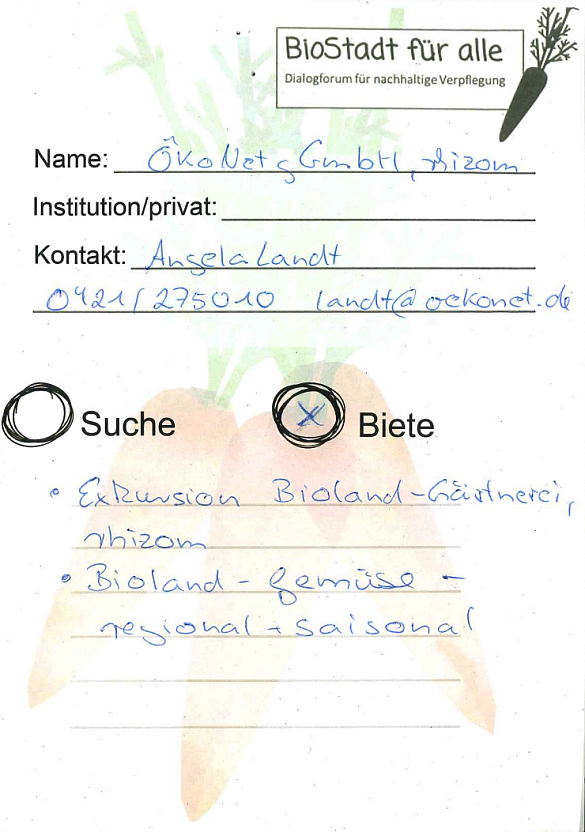 BioStadt für alle
Dialogforum für nachhaltige Verpflegung
Name: ÖkoNet gGmbH, rhizom
Institution/privat:
Kontakt: Angela Landt
0421/275010 landt@oekonet.de
Suche X Biete
• Exkursion Bioland-Gärtnerei,
rhizom
• Bioland-Gemüse -
regional + saisonal